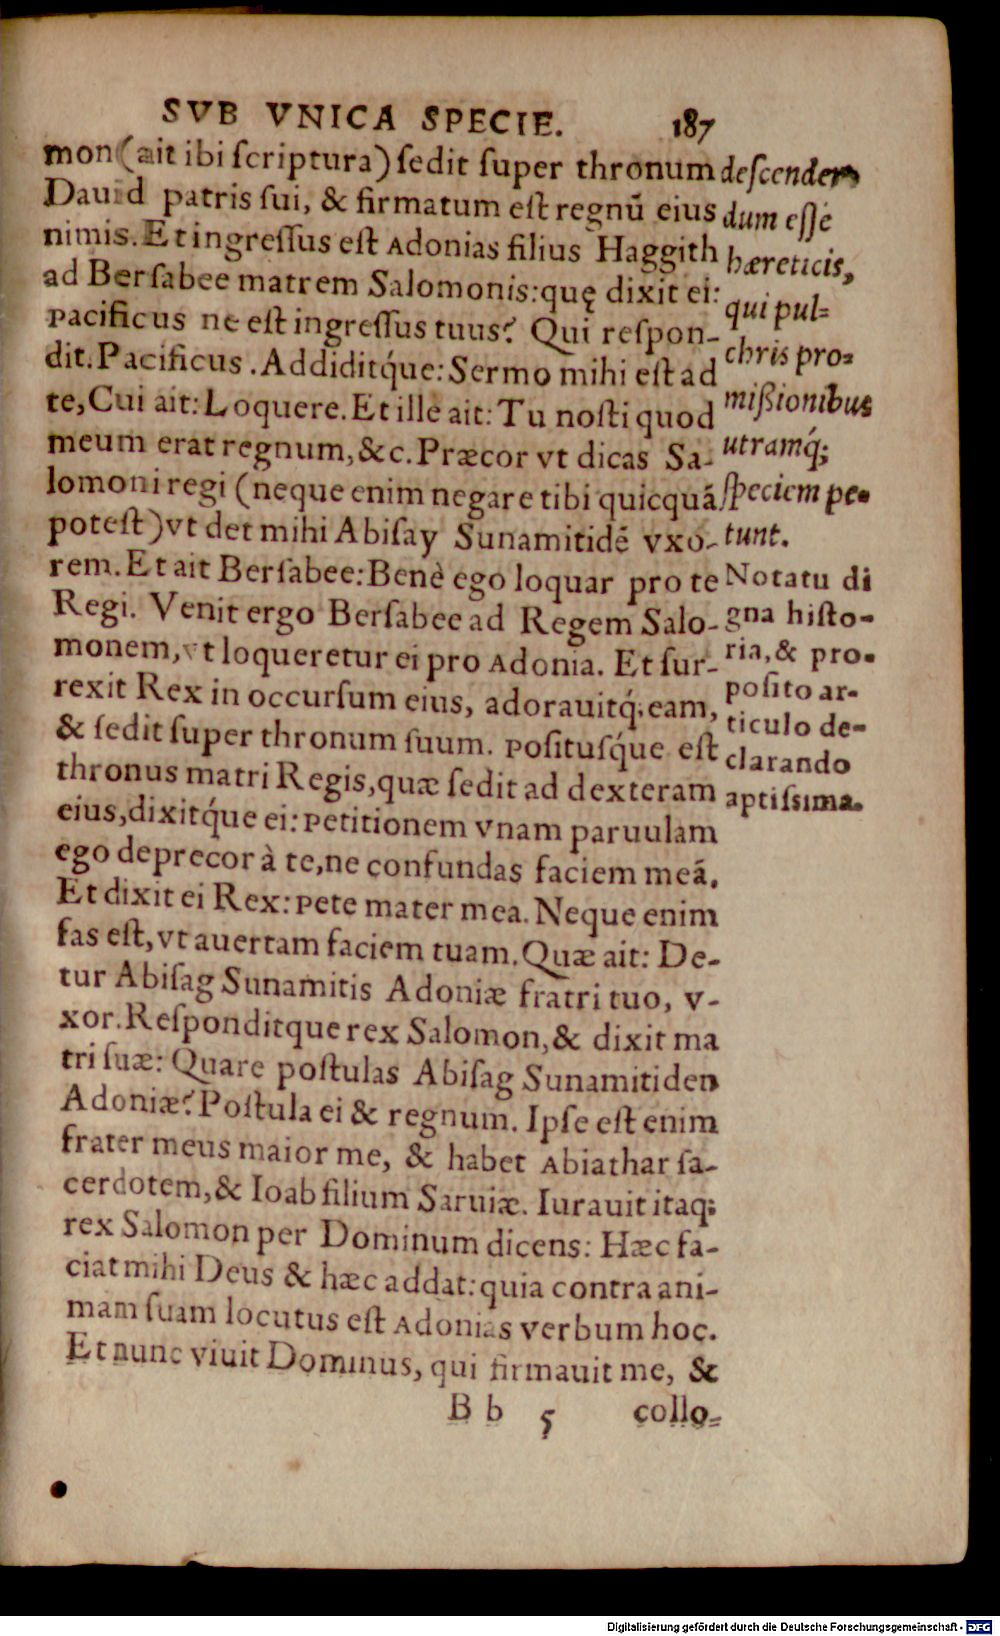 SVB VNICA SPECIE. 187
mon (ait ibi scriptura) sedit super thronum
Dauid patris sui, & firmatum est regnū eius
nimis. Et ingressus est Adonias filius Haggith
ad Bersabee matrem Salomonis: quę dixit ei:
Pacificus ne est ingressus tuus? Qui respon-
dit. Pacificus. Addiditq́ue: Sermo mihi est ad
te, Cui ait: Loquere. Et ille ait: Tu nosti quod
meum erat regnum, &c. Præcor vt dicas Sa-
lomoni regi (neque enim negare tibi quicquā
potest) vt det mihi Abisay Sunamitidē vxo-
rem. Et ait Bersabee: Benè ego loquar pro te
Regi. Venit ergo Bersabee ad Regem Salo-
monem, vt loqueretur ei pro Adonia. Et sur-
rexit Rex in occursum eius, adorauitq́; eam,
& sedit super thronum suum. Positusq́ue est
thronus matri Regis, quæ sedit ad dexteram
eius, dixitq́ue ei: Petitionem vnam paruulam
ego deprecor à te, ne confundas faciem meā.
Et dixit ei Rex: Pete mater mea. Neque enim
fas est, vt auertam faciem tuam. Quæ ait: De-
tur Abisag Sunamitis Adoniæ fratri tuo, v-
xor. Responditque rex Salomon, & dixit ma
tri suæ: Quare postulas Abisag Sunamiticen
Adoniæ? Postula ei & regnum. Ipse est enim
frater meus maior me, & habet Abiathar sa-
cerdotem, & Ioab filium Saruiæ. Iurauit itaq;
rex Salomon per Dominum dicens: Hæc fa-
ciat mihi Deus & hæc addat: quia contra ani-
mam suam locutus est Adonias verbum hoc.
Et nunc viuit Dominus, qui firmauit me, &
B b 5 collo-
descenden
dum esse
hæreticis,
qui pul-
chris pro-
mißionibus
utramq́;
speciem pe-
tunt.
Notatu di
gna histo-
ria, & pro-
posito ar-
ticulo de-
clarando
aptissima.
Digitalisierung gefördert durch die Deutsche Forschungsgemeinschaft - DFG